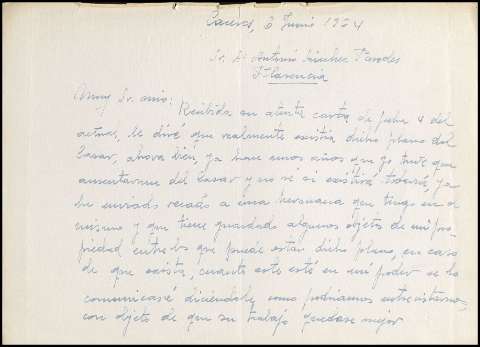 Cáceres, 6 Junio 1924
Sr. Dn Antonio Sánchez Paredes
Plasencia
Muy Sr. mio: Recibida su atenta carta de fecha 4 del
actual, le diré que realmente existia dicho plano del
Casar, ahora bién, ya hace unos años que yo tuve que
ausentarme del Casar y no sé si existirá todavia, ya
he enviado recado a una hermana que tengo en el
mismo y que tiene guardado algunos objetos de mi pro
piedad entre los que puede estar dicho plano, en caso
de que exista, cuanto este esté en mi poder se lo
comunicaré diciéndole, como podriamos entrevistarnos,
con objeto de que su trabajo quedase mejor